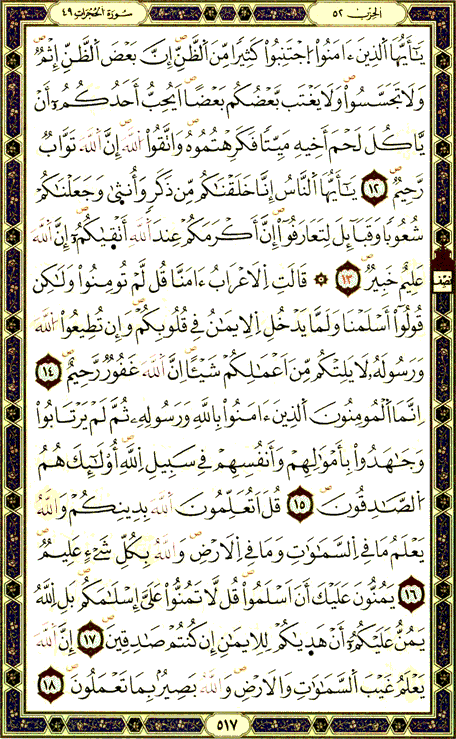 الحِزْبُ ٥٢
سُورَةُ الحُجُرَاتِ ٤٩
يَٰٓأَيُّهَا اَلذِينَ ءَامَنُواْ اُ۪جْتَنِبُواْ كَثِيراً مِّنَ اَلظَّنِّ إِنَّ بَعْضَ اَلظَّنِّ إِثْمٌۖ
وَلَا تَجَسَّسُواْۖ وَلَا يَغْتَب بَّعْضُكُم بَعْضاًۖ اَيُحِبُّ أَحَدُكُمُۥٓ أَنْ
يَّاكُلَ لَحْمَ أَخِيهِ مَيِّتاً فَكَرِهْتُمُوهُۖ وَاتَّقُواْ اُللَّهَۖ إِنَّ اَللَّهَ تَوَّابٌ
رَّحِيمٌۖ ١٢ يَٰٓأَيُّهَا اَلنَّاسُ إِنَّا خَلَقْنَٰكُم مِّن ذَكَرٖ وَأُنث۪يٰ وَجَعَلْنَٰكُمْ
شُعُوباً وَقَبَآئِلَ لِتَعَارَفُوٓاْۖ إِنَّ أَكْرَمَكُمْ عِندَ اَللَّهِ أَتْق۪يٰكُمُۥٓۖ إِنَّ اَللَّهَ
عَلِيمٌ خَبِيرٌۖ ١٣ ۞ قَالَتِ اِلَاعْرَابُ ءَامَنَّاۖ قُل لَّمْ تُومِنُواْ وَلَٰكِن
قُولُوٓاْ أَسْلَمْنَا وَلَمَّا يَدْخُلِ اِلِايمَٰنُ فِے قُلُوبِكُمْۖ وَإِن تُطِيعُواْ اُللَّهَ
وَرَسُولَهُۥ لَا يَلِتْكُم مِّنَ اَعْمَٰلِكُمْ شَيْـٔاًۖ اِنَّ اَللَّهَ غَفُورٌ رَّحِيمٌۖ ١٤
اِنَّمَا اَلْمُومِنُونَ اَلذِينَ ءَامَنُواْ بِاللَّهِ وَرَسُولِهِۦ ثُمَّ لَمْ يَرْتَابُواْ
وَجَٰهَدُواْ بِأَمْوَٰلِهِمْ وَأَنفُسِهِمْ فِے سَبِيلِ اِللَّهِۖ أُوْلَٰٓئِكَ هُمُ
اُلصَّٰدِقُونَۖ ١٥ قُلَ اَتُعَلِّمُونَ اَللَّهَ بِدِينِكُمْ وَاللَّهُ
يَعْلَمُ مَا فِے اِلسَّمَٰوَٰتِ وَمَا فِے اِلَارْضِۖ وَاللَّهُ بِكُلِّ شَےْءٍ عَلِيمٌۖ
١٦ يَمُنُّونَ عَلَيْكَ أَنَ اَسْلَمُواْۖ قُل لَّا تَمُنُّواْ عَلَيَّ إِسْلَٰمَكُمۖ بَلِ اِللَّهُ
يَمُنُّ عَلَيْكُمُۥٓ أَنْ هَد۪يٰكُمْ لِلِايمَٰنِ إِن كُنتُمْ صَٰدِقِينَۖ ١٧ إِنَّ اَللَّهَ
يَعْلَمُ غَيْبَ اَلسَّمَٰوَٰتِ وَالَارْضِۖ وَاللَّهُ بَصِيرُۢ بِمَا تَعْمَلُونَۖ ١٨
نصف
٥١٧